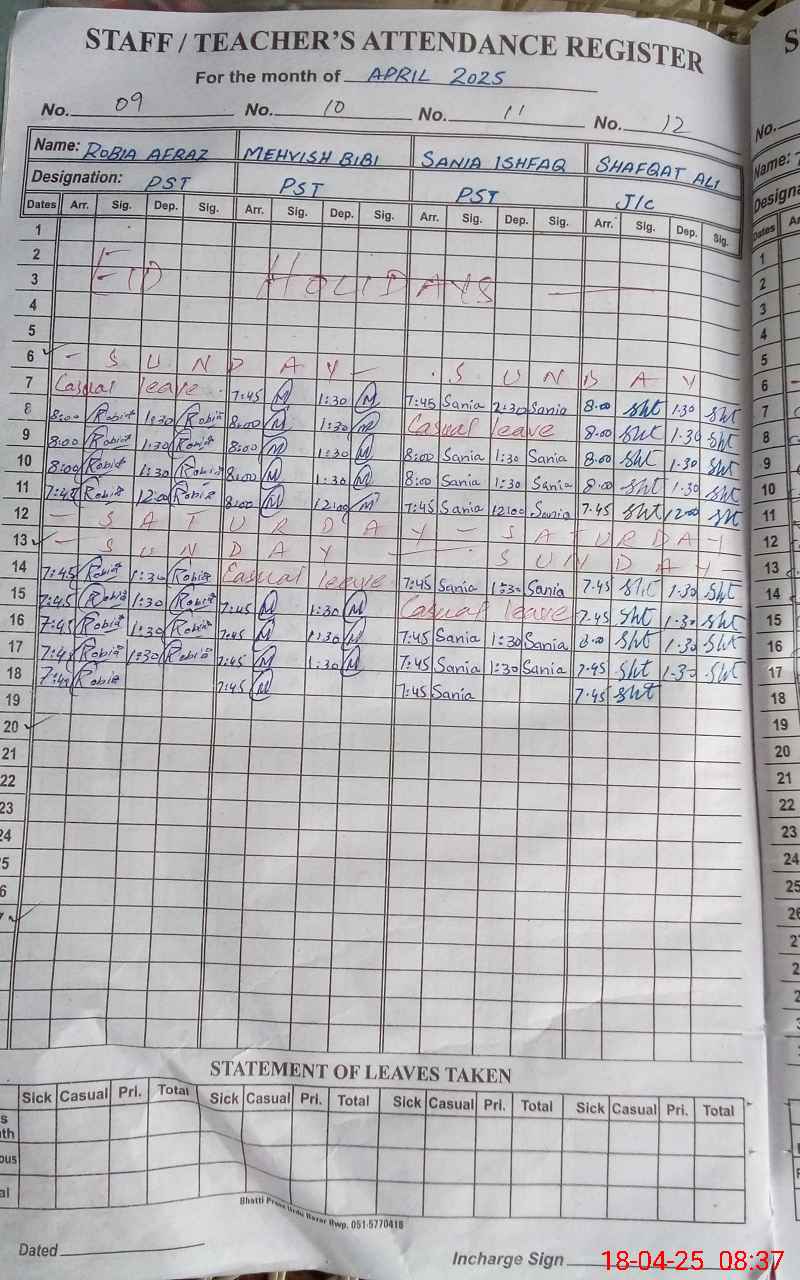 STAFF / TEACHER'S ATTENDANCE REGISTER
For the month of APRIL 2025
No. 09 No. 10 No. 11 No. 12
Name: ROBIA AFRAZ MEHVISH BIBI SANIA ISHFAQ SHAFQAT ALI
Designation: PST PST PST J/C
Dates Arr. Sig. Dep. Sig. Arr. Sig. Dep. Sig. Arr. Sig. Dep. Sig. Arr. Sig. Dep. Sig.
1
2
3 EID HOLIDAYS
4
5
6 - SUNDAY - SUNDAY
7 Casual leave 7:45 M 1:30 M 7:45 Sania 2:30 Sania 8.00 Sht 1.30 Sht
8 8:00 Robia 1:30 Robia 8:00 M 1:30 M Casual leave 8.00 Sht 1.30 Sht
9 8:00 Robia 1:30 Robia 8:00 M 1:30 M 8:00 Sania 1:30 Sania 8.00 Sht 1.30 Sht
10 8:00 Robia 1:30 Robia 8:00 M 1:30 M 8:00 Sania 1:30 Sania 8.00 Sht 1.30 Sht
11 7:45 Robia 12:00 Robia 8:00 M 12:00 M 7:45 Sania 12:00 Sania 7.45 Sht 12.00 Sht
12 - SATURDAY - SATURDAY
13 - SUNDAY - SUNDAY -
14 7:45 Robia 1:30 Robia Casual leave 7:45 Sania 1:30 Sania 7.45 Sht 1.30 Sht
15 7:45 Robia 1:30 Robia 7:45 M 1:30 M Casual leave 7.45 Sht 1.30 Sht
16 7:45 Robia 1:30 Robia 7:45 M 1:30 M 7:45 Sania 1:30 Sania 8.00 Sht 1.30 Sht
17 7:45 Robia 1:30 Robia 7:45 M 1:30 M 7:45 Sania 1:30 Sania 7.45 Sht 1.30 Sht
18 Robia 7:45 M 7:45 Sania 7.45 Sht
19
20
21
22
23
24
5
6
7
STATEMENT OF LEAVES TAKEN
Sick Casual Pri. Total Sick Casual Pri. Total Sick Casual Pri. Total Sick Casual Pri. Total
Bhatti Press Urdu Bazar Rwp. 051-5770418
Dated
Incharge Sign
18-04-25 08:37